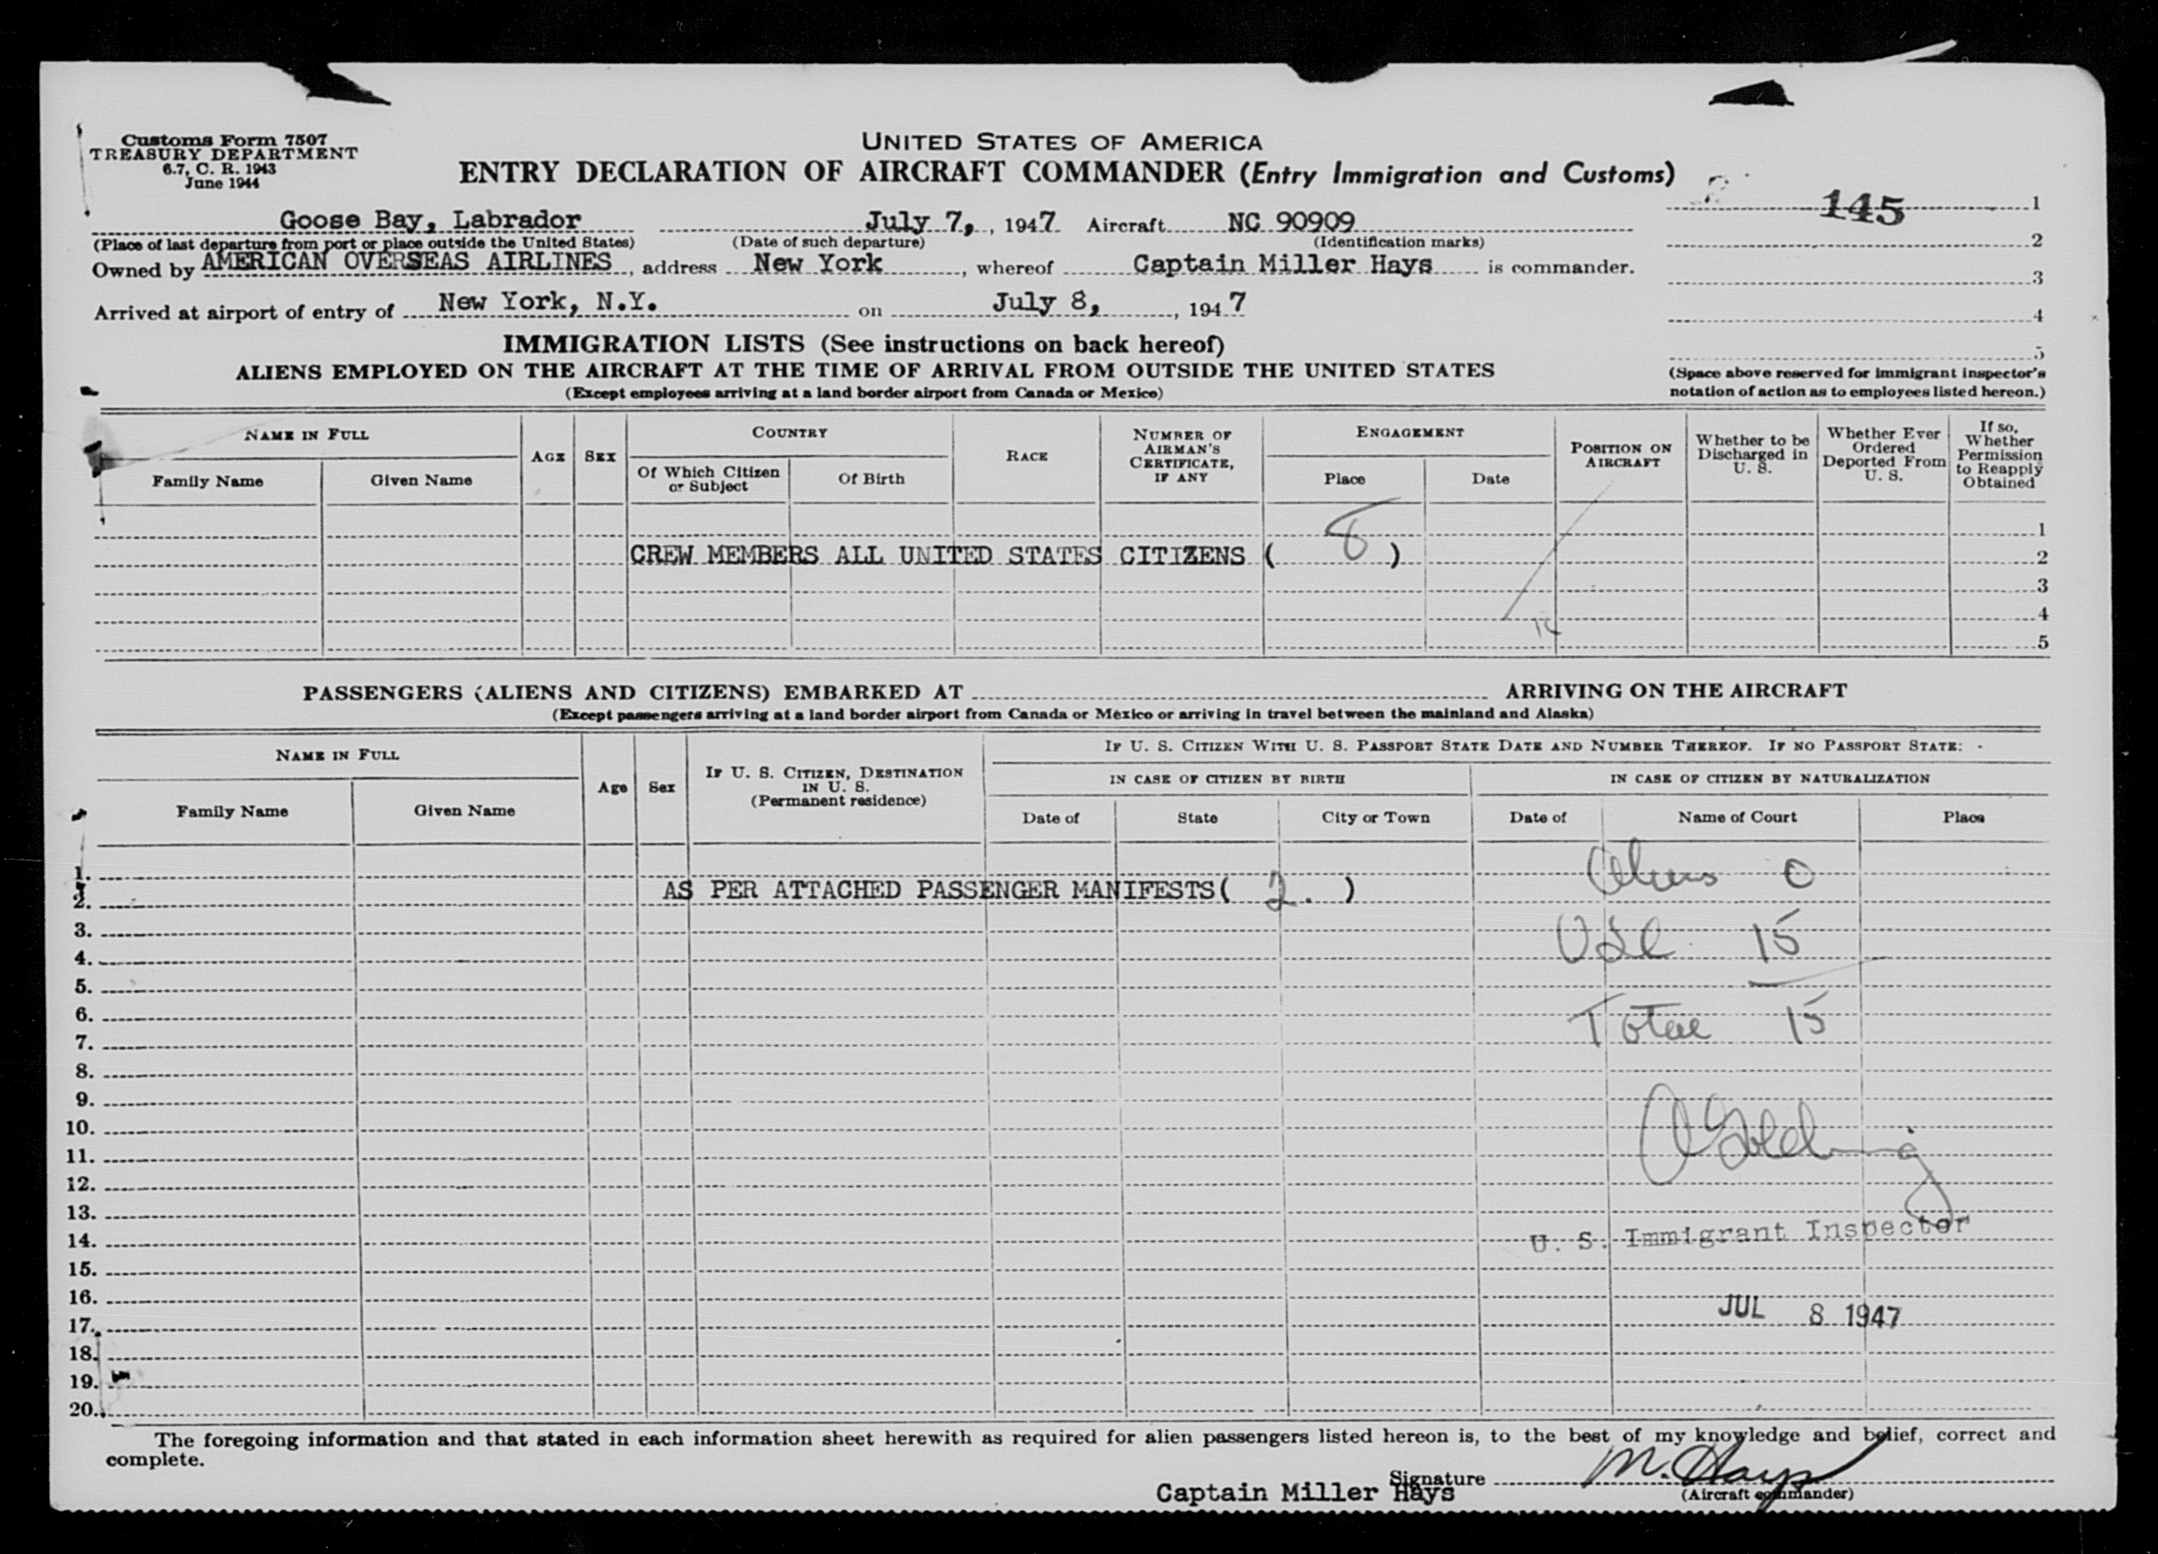 Customs Form 7507
TREASURY DEPARTMENT
6.7, C. R. 1943
June 1944
UNITED STATES OF AMERICA
ENTRY DECLARATION OF AIRCRAFT COMMANDER (Entry Immigration and Customs)
145 1
Goose Bay, Labrador July 7, , 1947 Aircraft NC 90909
(Place of last departure from port or place outside the United States) (Date of such departure) (Identification marks) 2
Owned by AMERICAN OVERSEAS AIRLINES , address New York , whereof Captain Miller Hays is commander.
3
Arrived at airport of entry of New York, N.Y. on July 8, , 1947
4
IMMIGRATION LISTS (See instructions on back hereof)
5
ALIENS EMPLOYED ON THE AIRCRAFT AT THE TIME OF ARRIVAL FROM OUTSIDE THE UNITED STATES
(Except employees arriving at a land border airport from Canada or Mexico)
(Space above reserved for immigrant inspector's
notation of action as to employees listed hereon.)
NAME IN FULL
Family Name Given Name
AGE SEX
COUNTRY
Of Which Citizen
or Subject
Of Birth
RACE
NUMBER OF
AIRMAN'S
CERTIFICATE,
IF ANY
ENGAGEMENT
Place Date
POSITION ON
AIRCRAFT
Whether to be
Discharged in
U. S.
Whether Ever
Ordered
Deported From
U. S.
If so,
Whether
Permission
to Reapply
Obtained
1
CREW MEMBERS ALL UNITED STATES CITIZENS ( 8 ) 2
3
4
5
PASSENGERS (ALIENS AND CITIZENS) EMBARKED AT ARRIVING ON THE AIRCRAFT
(Except passengers arriving at a land border airport from Canada or Mexico or arriving in travel between the mainland and Alaska)
NAME IN FULL
Family Name Given Name
Age Sex
IF U. S. CITIZEN, DESTINATION
IN U. S.
(Permanent residence)
IF U. S. CITIZEN WITH U. S. PASSPORT STATE DATE AND NUMBER THEREOF. IF NO PASSPORT STATE:
IN CASE OF CITIZEN BY BIRTH IN CASE OF CITIZEN BY NATURALIZATION
Date of State City or Town Date of Name of Court Place
1. Aliens 0
2. AS PER ATTACHED PASSENGER MANIFESTS( 2. )
3. USC 15
4.
5.
6. Total 15
7.
8.
9.
10.
11.
12.
13.
14. U. S. Immigrant Inspector
15.
16.
17. JUL 8 1947
18.
19.
20.
The foregoing information and that stated in each information sheet herewith as required for alien passengers listed hereon is, to the best of my knowledge and belief, correct and
complete.
Signature M. Hays
Captain Miller Hays (Aircraft commander)